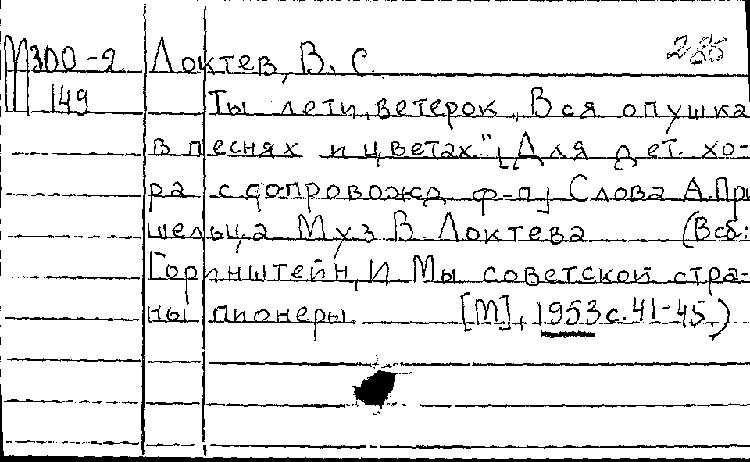 М300-2 Локтев, В. С. 285
149 Ты лети, ветерок „Вся опушка
в песнях и цветах." [Для дет. хо-
ра с сопровожд ф-п] Слова А. При
шельца Муз В. Локтева (В сб:
Горинштейн, И Мы советской стра-
ны пионеры [М], 1953 с. 41-45.)